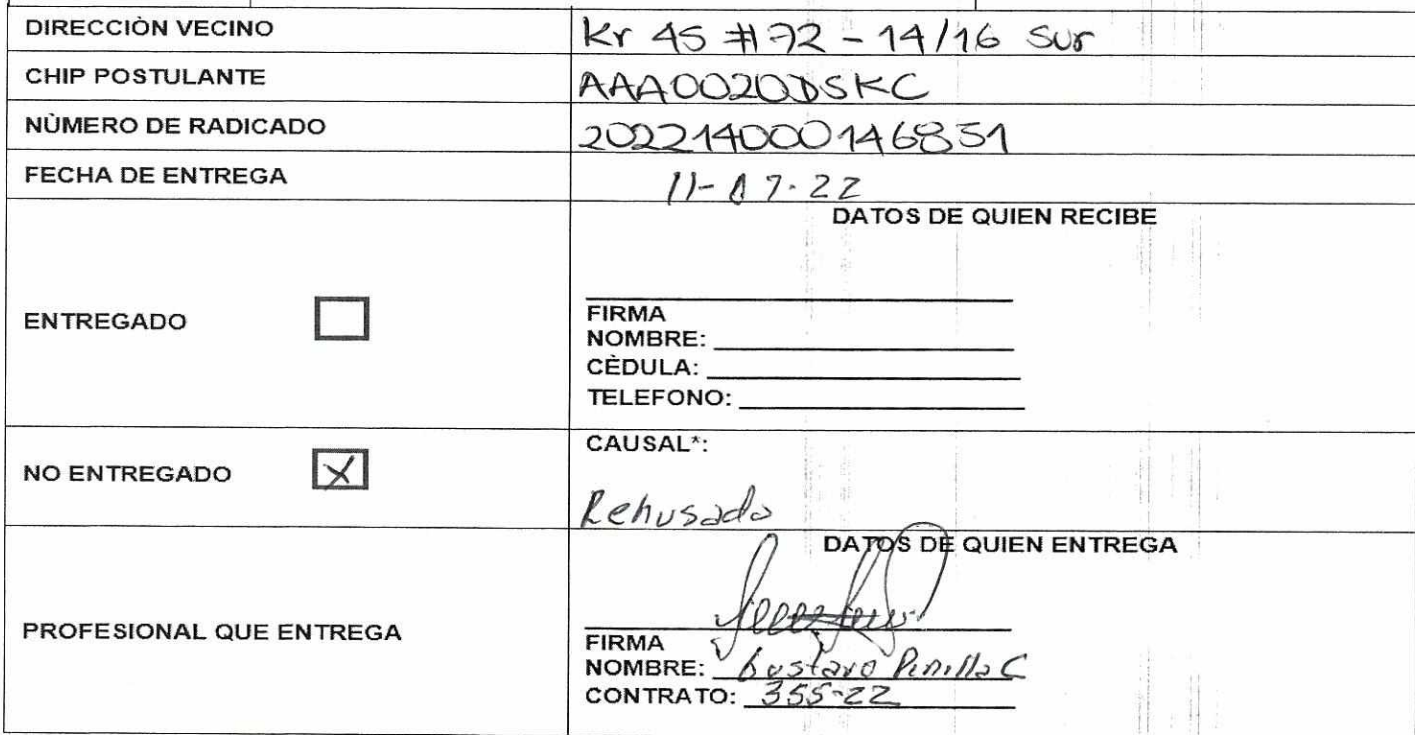 DIRECCIÒN VECINO
Kr 45 # 72 - 14/16 Sur
CHIP POSTULANTE
AAA0020DSKC
NÙMERO DE RADICADO
20221400146831
FECHA DE ENTREGA
11-07-22
DATOS DE QUIEN RECIBE
ENTREGADO
FIRMA
NOMBRE:
CÈDULA:
TELEFONO:
NO ENTREGADO X
CAUSAL*:
Rehusado
DATOS DE QUIEN ENTREGA
PROFESIONAL QUE ENTREGA
FIRMA
NOMBRE: Gustavo Pinilla C
CONTRATO: 355-22